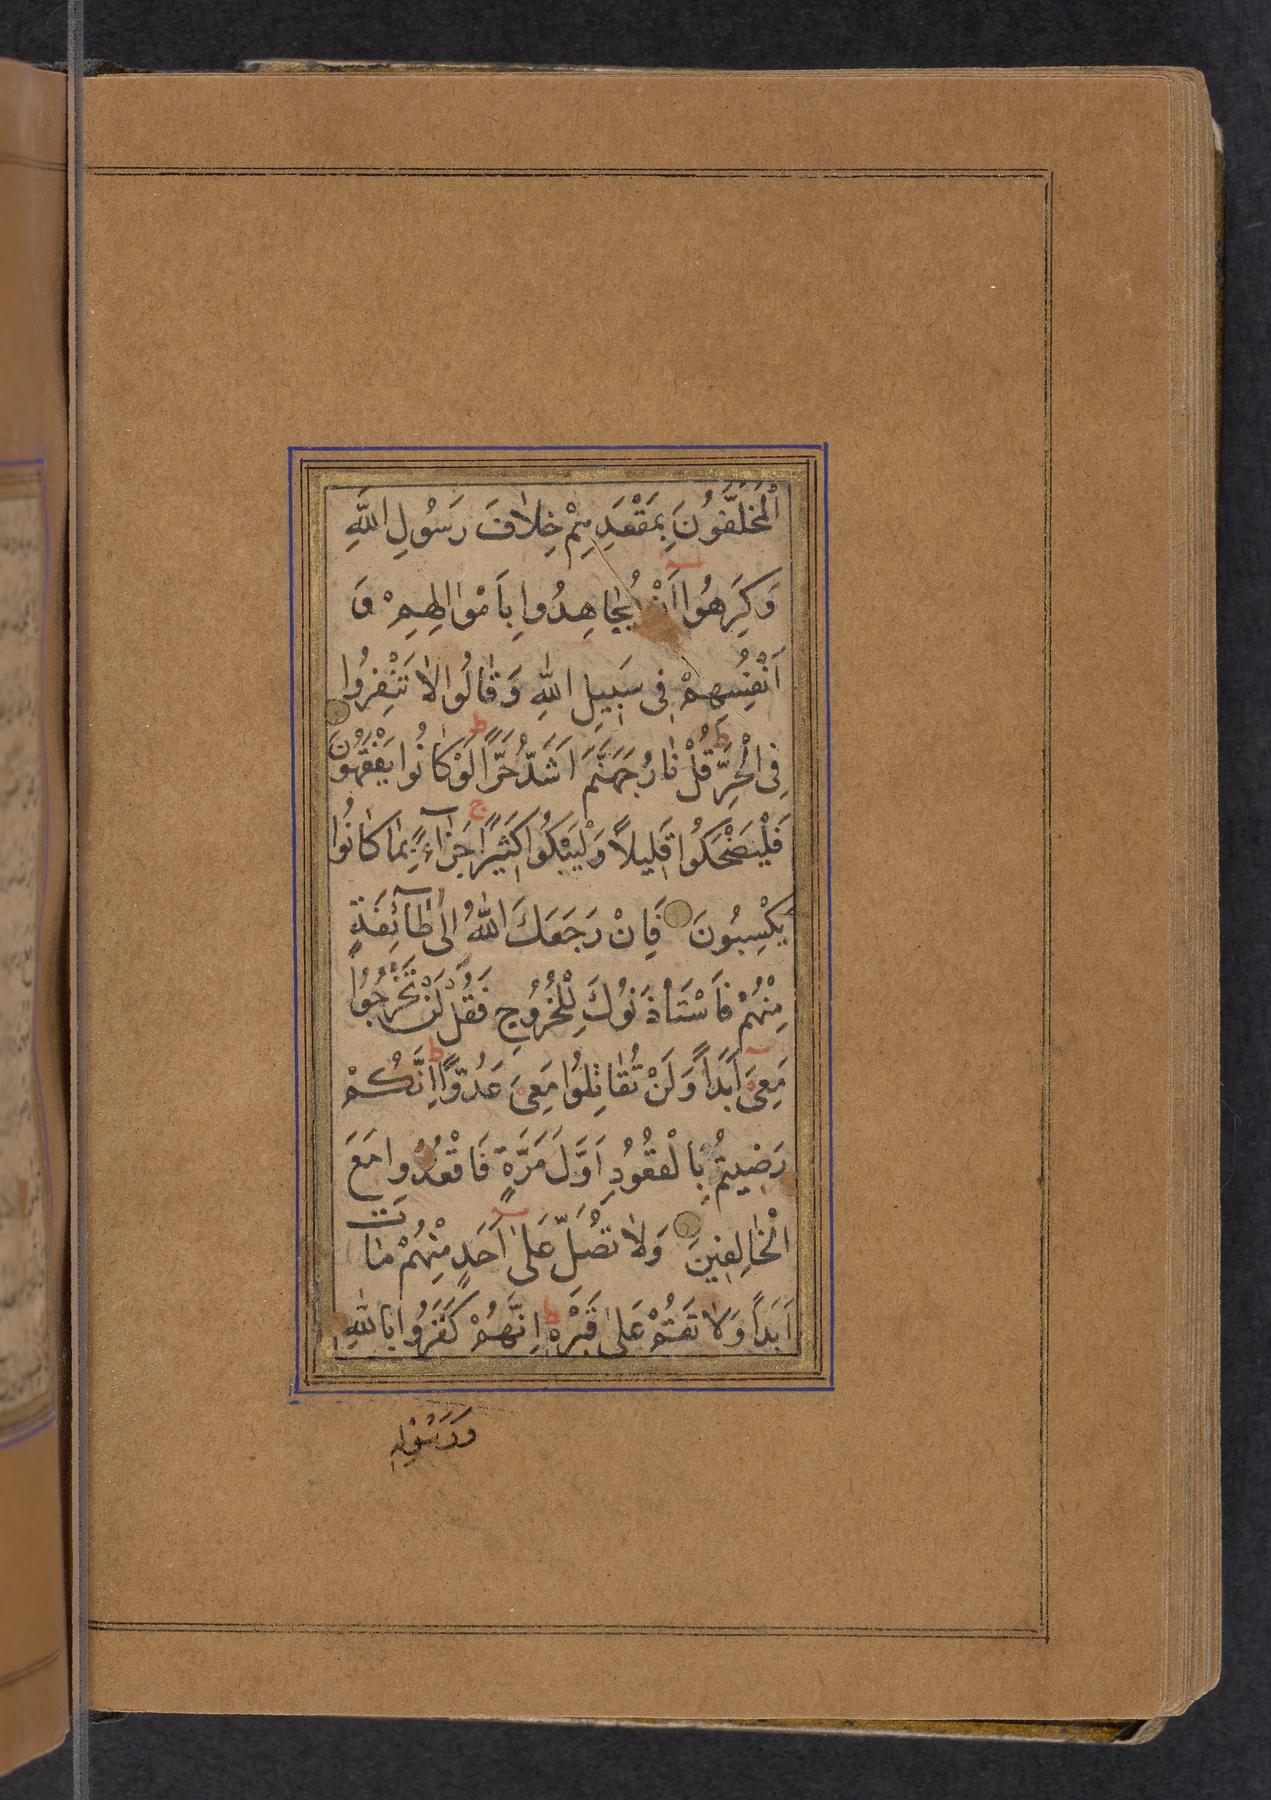 اَلْمُخَلَّفُونَ بِمَقْعَدِهِمْ خِلَافَ رَسُولِ اللَّهِ
وَكَرِهُوا اَنْ يُجَاهِدُوا بِاَمْوَالِهِمْ وَ
اَنْفُسِهِمْ فِى سَبِيلِ اللهِ وَقَالُوا لَا تَنْفِرُوا
فِى الْحَرِّ ط قُلْ نَارُ جَهَنَّمَ اَشَدُّ حَرًّا ط لَوْ كَانُوا يَفْقَهُونَ
فَلْيَضْحَكُوا قَلِيلاً وَلْيَبْكُوا كَثِيرًا ج جَزَآءً بِمَا كَانُوا
يَكْسِبُونَ فَاِنْ رَجَعَكَ اللهُ اِلٰى طَآئِفَةٍ
مِنْهُمْ فَاسْتَأْذَنُوكَ لِلْخُرُوجِ فَقُلْ لَنْ تَخْرُجُوا
مَعِىَ اَبَدًا وَلَنْ تُقَاتِلُوا مَعِىَ عَدُوًّا ط اِنَّكُمْ
رَضِيتُمْ بِالْقُعُودِ اَوَّلَ مَرَّةٍ فَاقْعُدُوا مَعَ
الْخَالِفِينَ وَلَا تُصَلِّ عَلٰى اَحَدٍ مِنْهُمْ مَاتَ
اَبَدًا وَلَا تَقُمْ عَلٰى قَبْرِهِ ط اِنَّهُمْ كَفَرُوا بِاللهِ
وَرَسُولِهِ